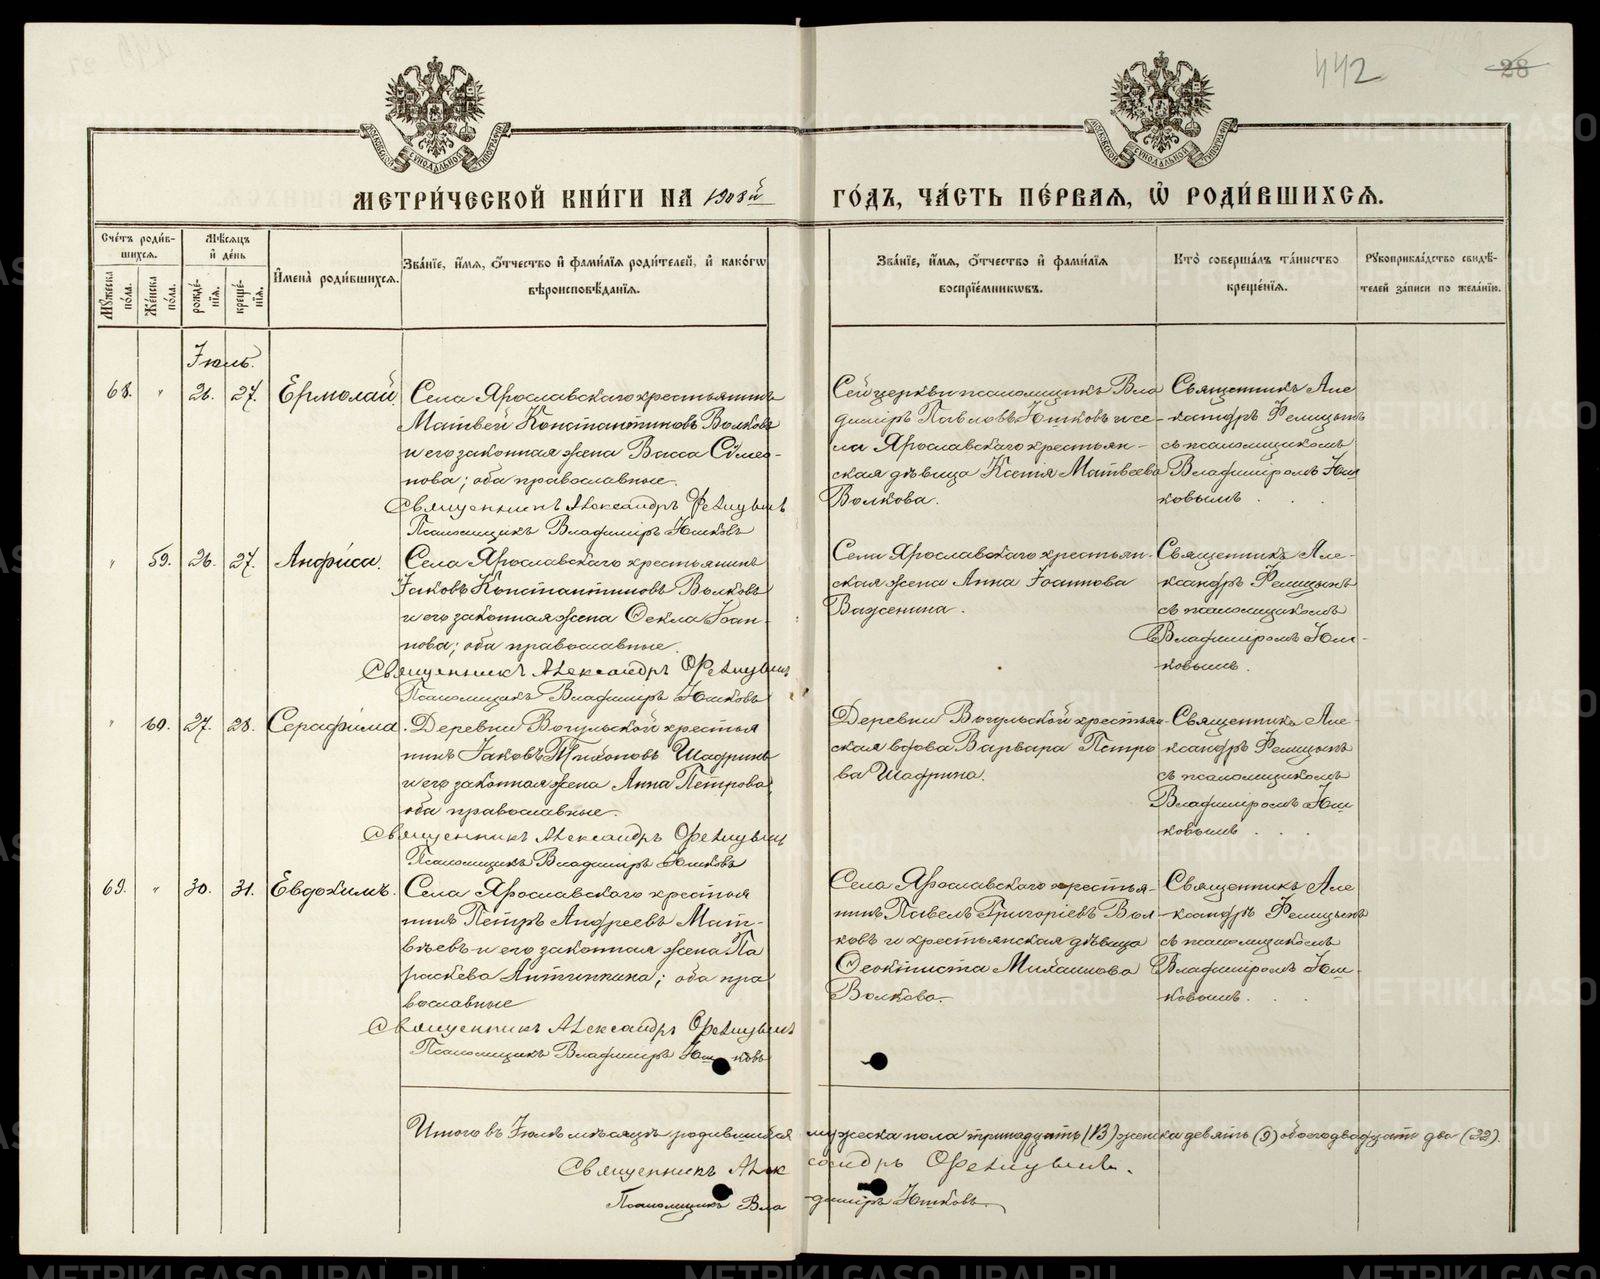 442
28
МОСКОВСКОЙ СѴНОДАЛЬНОЙ ТИПОГРАФІИ
МОСКОВСКОЙ СѴНОДАЛЬНОЙ ТИПОГРАФІИ
МЕТРИ́ЧЕСКОЙ КНИ́ГИ НА 1908й ГО́ДЪ, ЧА́СТЬ ПЕ́РВАЯ, Ѽ РОДИ́ВШИХСѦ.
Сче́тъ роди́в-
шихсѧ.
Мꙋ́жеска по́ла.
Же́нска по́ла.
Мѣ́сѧцъ
и҆ де́нь
рожде́-
нїѧ.
креще́-
нїѧ.
И҆мена̀ роди́вшихсѧ.
Зва́нїе, и҆́мѧ, ѻ҆́тчество и҆ фамѝлїѧ роди́телей, и҆ како́гѡ
вѣроисповѣ́данїѧ.
Зва́нїе, и҆́мѧ, ѻ҆́тчество и҆ фамѝлїѧ
воспрїе́мникѡвъ.
Кто̀ соверша́лъ та́инство
креще́нїѧ.
Рꙋкоприкла́дство свидѣ́-
телей за́писи по жела́нїю.
Іюль.
68. " 26. 27. Ермолай.
Села Ярославскаго крестьянинъ
Матвей Константиновъ Волковъ
и его законная жена Васса Симео-
нова; оба православные.
Священникъ Александръ Фелицынъ
Псаломщикъ Владиміръ Юшковъ
Сей церкви псаломщикъ Вла
диміръ Павловъ Юшковъ и се-
ла Ярославскаго крестьян-
ская дѣвица Ксенія Матвеева
Волкова.
Священникъ Але
ксандръ Фелицынъ
съ псаломщикомъ
Владиміромъ Юш
ковымъ.
" 59. 26. 27. Анфиса.
Села Ярославскаго крестьянинъ
Іаковъ Константиновъ Волковъ
и его законная жена Ѳекла Іоан-
нова; оба православные.
Священникъ Александръ Фелицынъ
Псаломщикъ Владиміръ Юшковъ
Села Ярославскаго крестьян-
ская жена Анна Іоаннова
Важенина.
Священникъ Але-
ксандръ Фелицынъ
съ псаломщикомъ
Владиміромъ Юш-
ковымъ.
" 60. 27. 28. Серафима.
Деревни Вогульской крестья
нинъ Іаковъ Тихоновъ Шадринъ
и его законная жена Анна Петрова;
оба православные.
Священникъ Александръ Фелицынъ
Псаломщикъ Владиміръ Юшковъ
Деревни Вогульской крестьян-
ская вдова Варвара Петро
ва Шадрина.
Священникъ Але-
ксандръ Фелицынъ
съ псаломщикомъ
Владиміромъ Юш
ковымъ.
69. " 30. 31. Евдокимъ.
Села Ярославскаго крестья
нинъ Петръ Андреевъ Мат-
вѣевъ и его законная жена Па
раскева Антипина; оба пра
вославные
Священникъ Александръ Фелицынъ
Псаломщикъ Владиміръ Юшковъ
Села Ярославскаго крестья-
нинъ Павелъ Григоріевъ Вол-
ковъ и крестьянская дѣвица
Ѳеоктиста Михаилова
Волкова.
Священникъ Але
ксандръ Фелицынъ
съ псаломщикомъ
Владиміромъ Юш-
ковымъ.
Итого въ Іюлѣ мѣсяцѣ родившихся мужеска пола тринадцать (13) женска девять (9) обоего двадцать два (22).
Священникъ Александръ Фелицынъ.
Псаломщикъ Владиміръ Юшковъ
METRIKI.GASO-URAL.RU